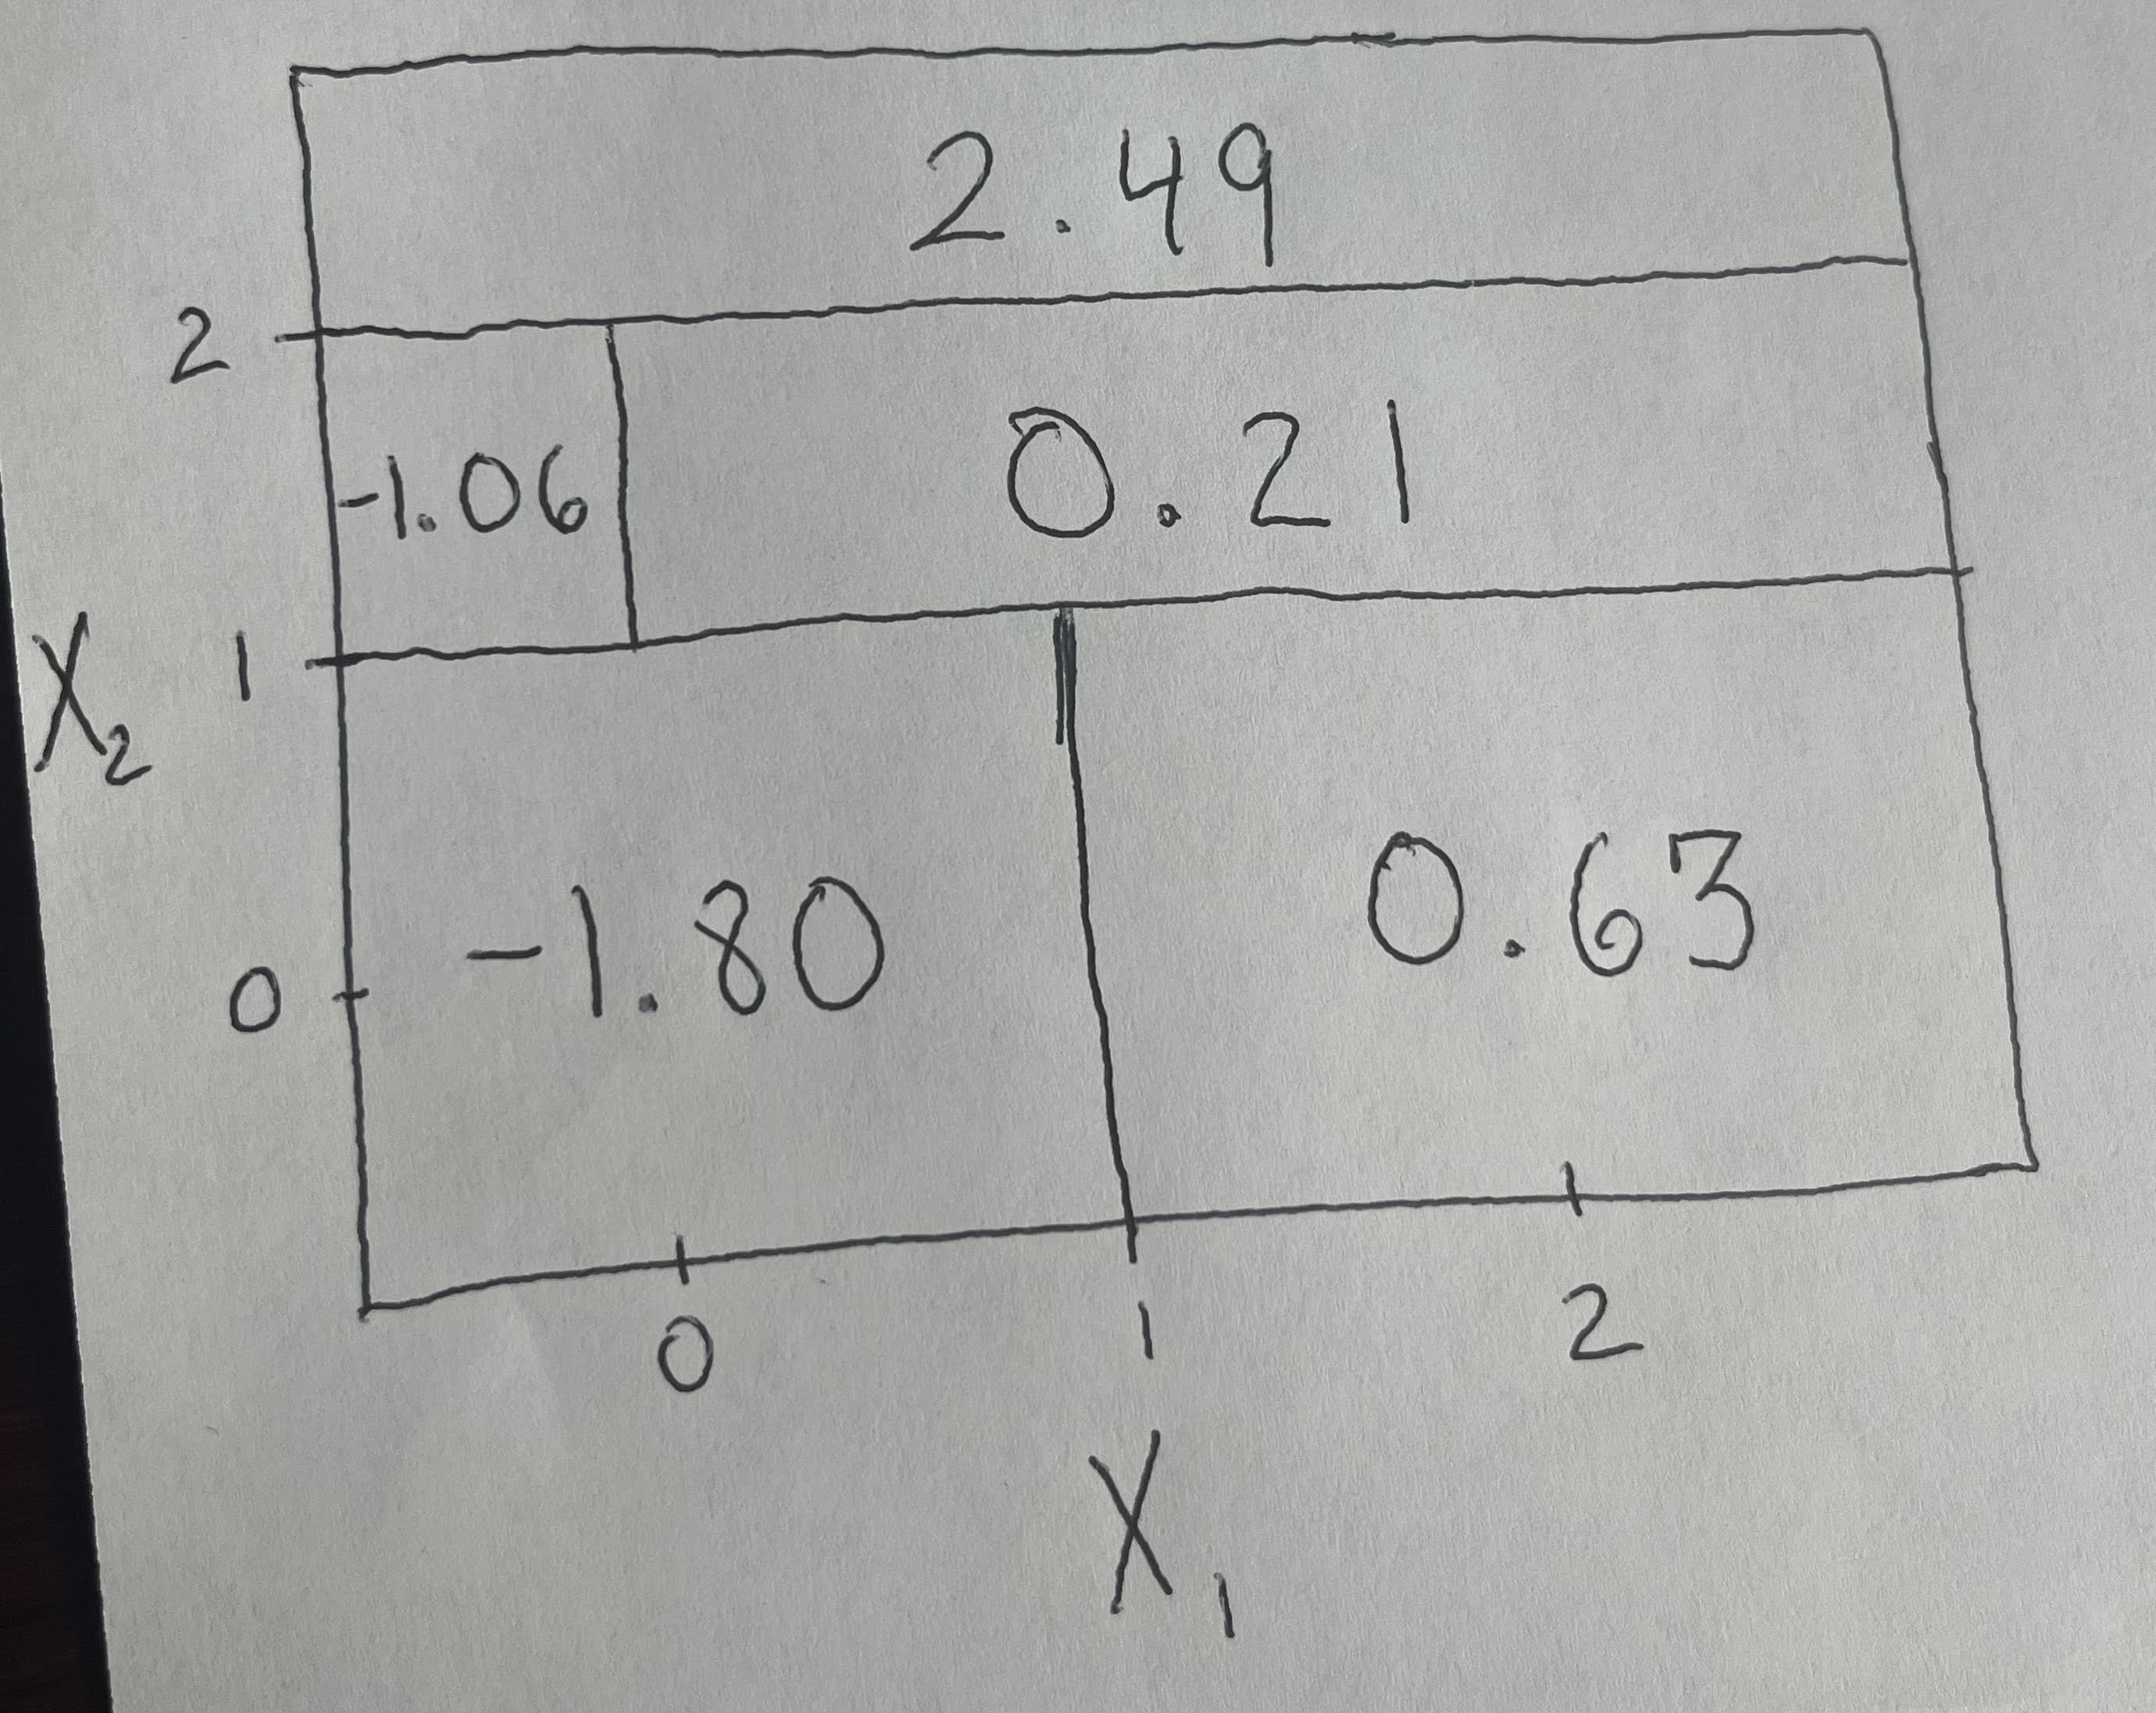 2.49
2
-1.06 0.21
X₂ 1
-1.80 0.63
0
0 1 2
X₁